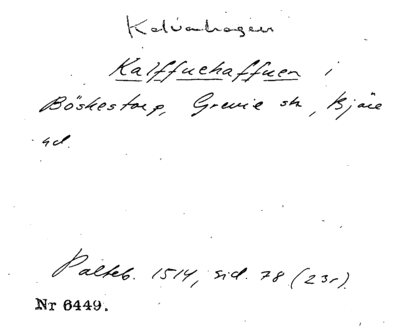 Kalvahagen
Kalffuehaffuen i
Böskestorp, Grevie sn, Bjäre
hd.
Palteb. 1514, sid. 78 (23r)
Nr 6449.